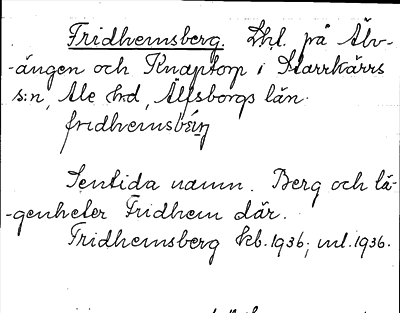 Fridhemsberg. Lhl. på Älv-
-ängen och Knaptorp i Starrkärrs
s:n, Ale hd, Älfsborgs län.
fridhemsbérj
Sentida namn. Berg och lä-
-genheter Fridhem där.
Fridhemsberg kb. 1936; ml. 1936.